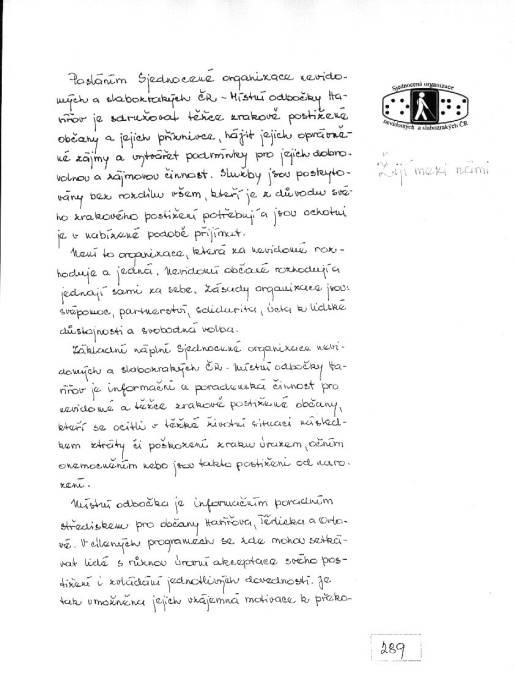 Posláním Sjednocené organizace nevido-
mých a slabozrakých ČR - Místní odbočky Ha-
vířov je sdružovat těžce zrakově postižené
občany a jejich příznivce, hájit jejich oprávně-
né zájmy a vytvářet podmínky pro jejich dobro-
volnou a zájmovou činnost. Služby jsou poskyto-
vány bez rozdílu všem, kteří je z důvodu své-
ho zrakového postižení potřebují a jsou ochotni
je v nabízené podobě přijímat.
Není to organizace, která za nevidomé roz-
hoduje a jedná. Nevidomí občané rozhodují a
jednají sami za sebe. Zásady organizace jsou:
svépomoc, partnerství, solidarita, úcta k lidské
důstojnosti a svobodná volba.
Základní náplní Sjednocené organizace nevi-
domých a slabozrakých ČR - Místní odbočky Ha-
vířov je informační a poradenská činnost pro
nevidomé a těžce zrakově postižené občany,
kteří se ocitli v těžké životní situaci násled-
kem ztráty či poškození zraku úrazem, očním
onemocněním nebo jsou takto postižení od naro-
zení.
Místní odbočka je informačním poradním
střediskem pro občany Havířova, Těrlicka a Orlo-
vé. V cílených programech se zde mohou setká-
vat lidé s různou úrovní akceptace svého pos-
tižení i zvládání jednotlivých dovedností. Je
tak umožněna jejich vzájemná motivace k překo-
Sjednocená organizace
nevidomých a slabozrakých ČR
Žijí mezi námi
289